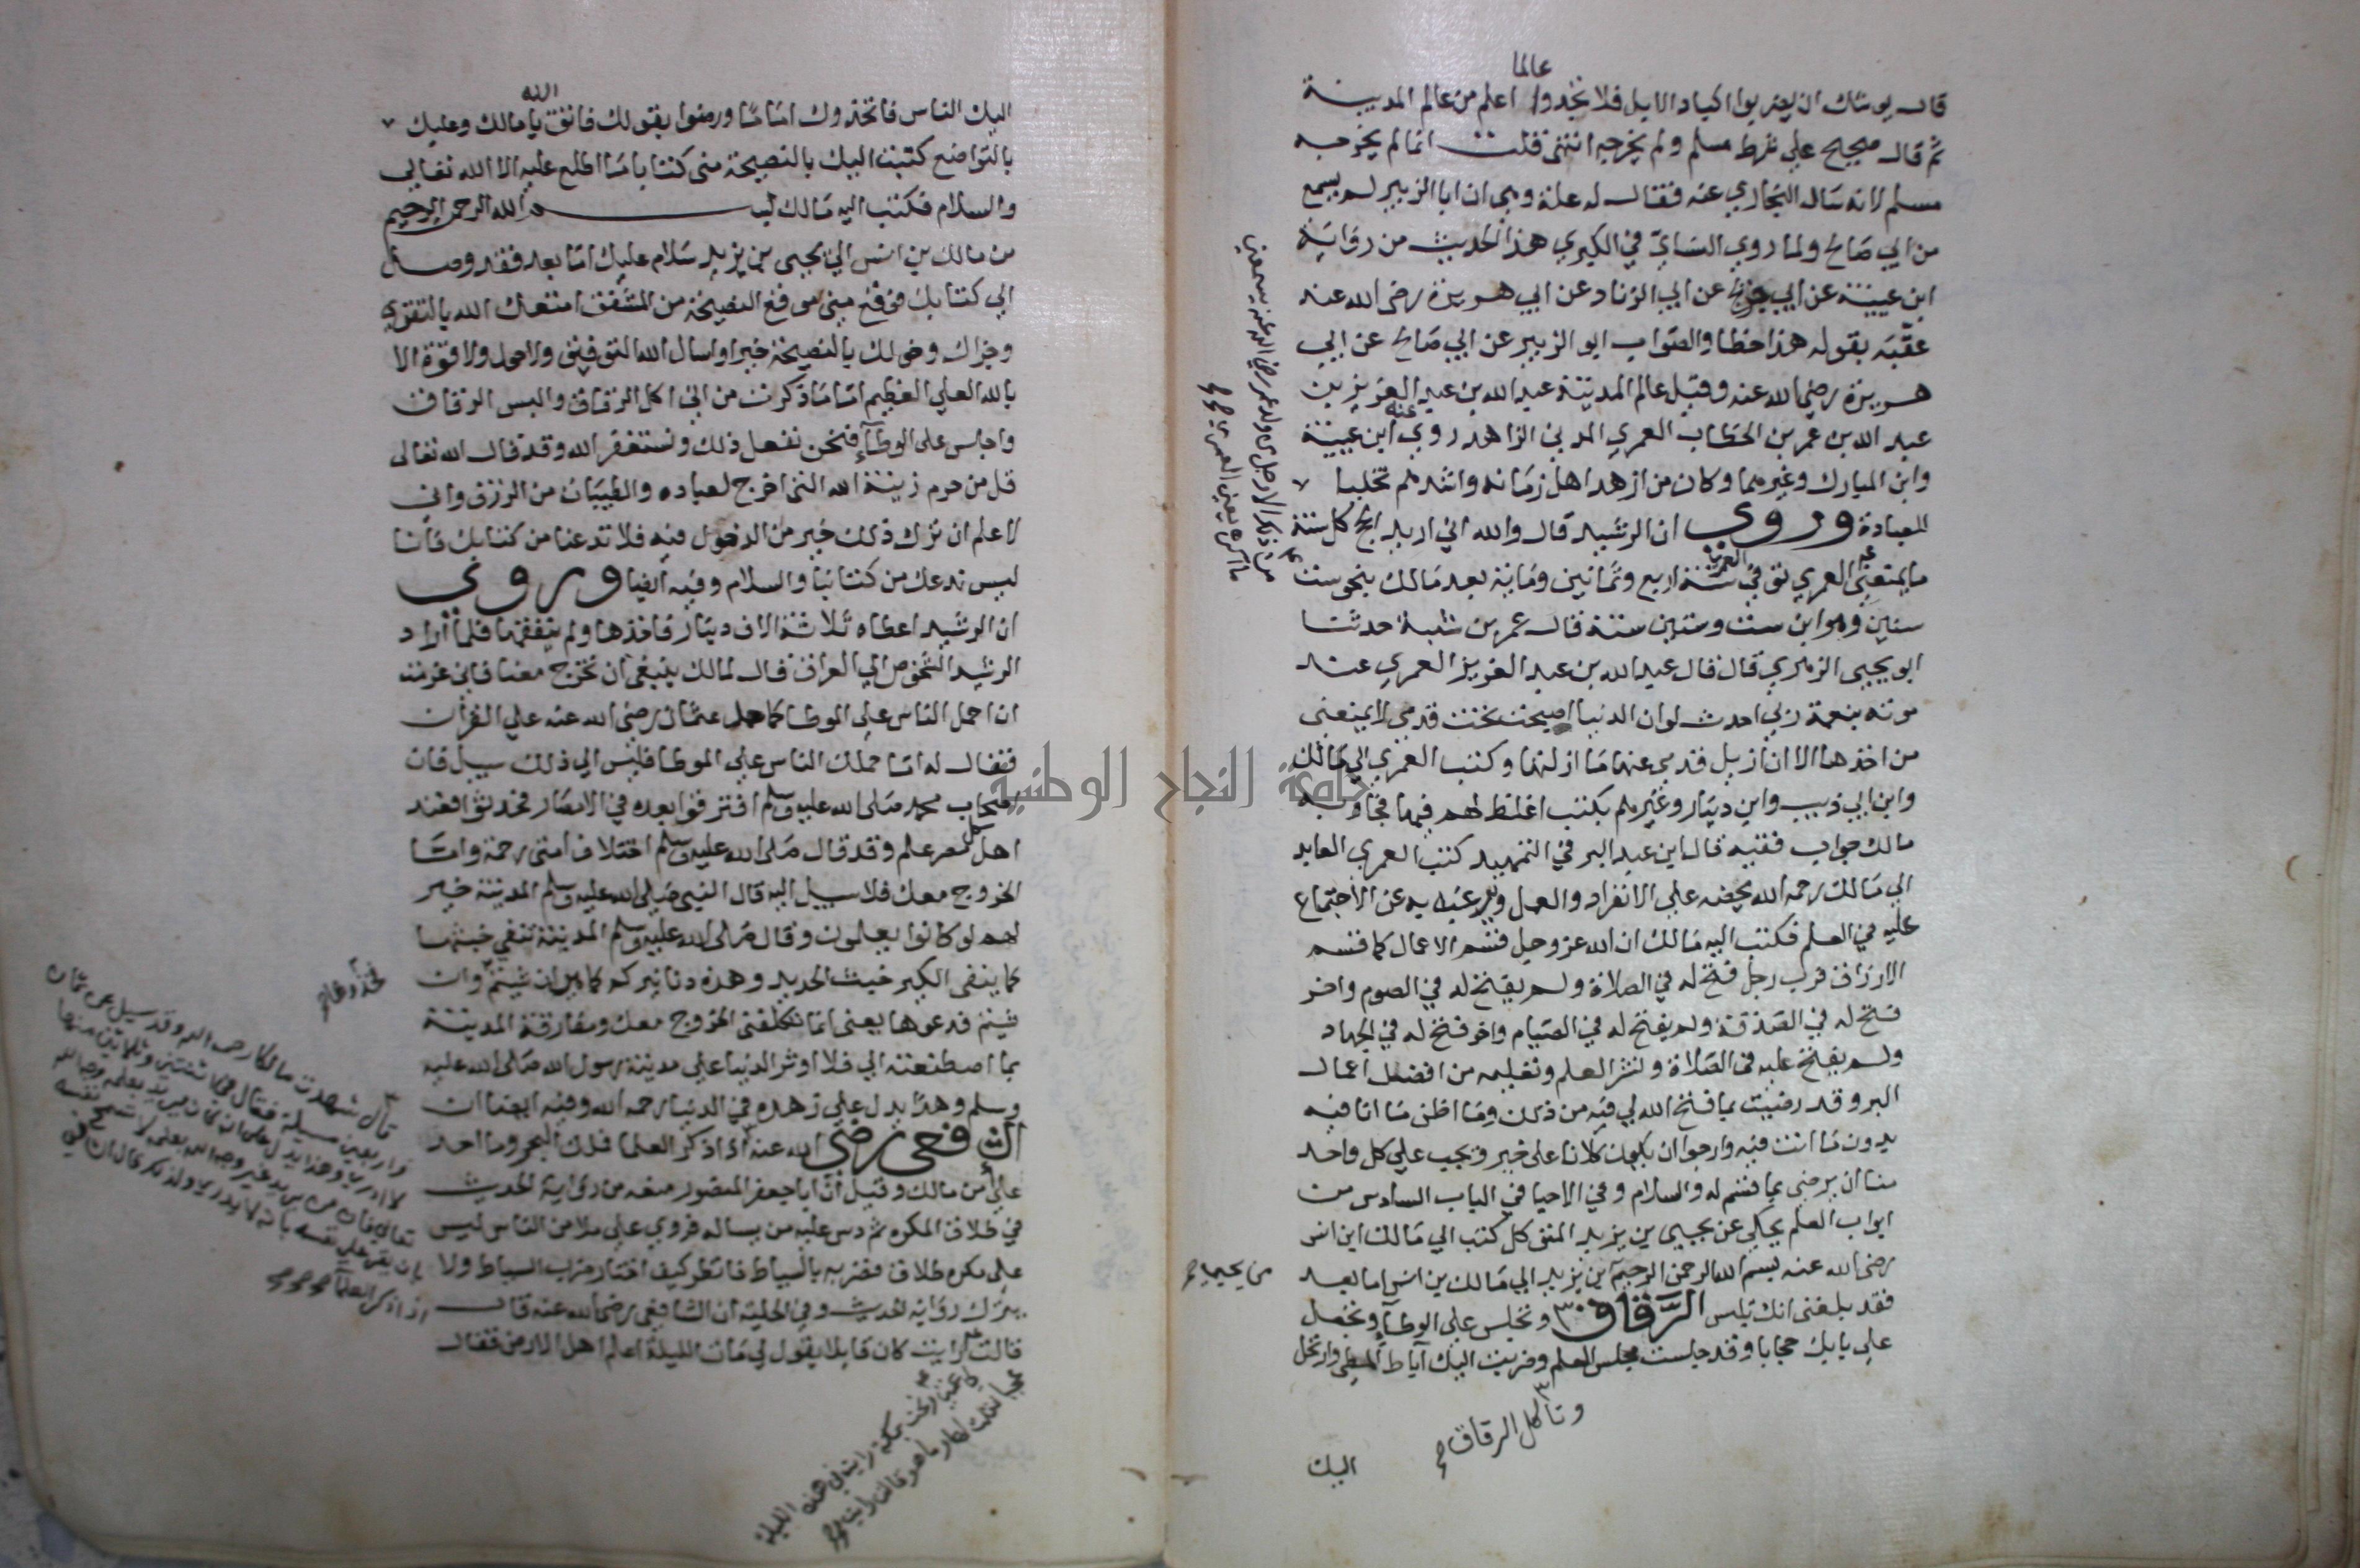 عالما
قال يوشك ان يضربوا اكباد الابل فلا يجدوا اعلم من عالم المدينة
ثم قال صحيح علي شرط مسلم ولم يخرجه انتهى قلت انما لم يخرجه
مسلم لانه سال البخاري عنه فقال له علة وهي ان ابا الزبير لم يسمع
من ابي صالح ولما روي النساي في الكبري هذا الحديث من رواية
ابن عيينة عن ابي عن ابي الزناد عن ابي هريرة رضي الله عنه
عقبه بقوله هذا خطا والصواب ابو الزبير عن ابي صالح عن ابي
هريرة رضي الله عنه وقيل عالم المدينة عبد الله بن عبد العزيز بن
عبد الله بن عمر بن الخطاب العمري المدني الزاهد روي عنه ابن عيينة
وابن المبارك وغيرهما وكان من ازهد اهل زمانه واشدهم تخليا
للعبادة وروي ان الرشيد قال والله اني اريد الحج كل سنة
ما يمنعني العمري توفي سنة اربع وثمانين ومائة بعد مالك بنحو ست
سنين وهو ابن ست وستين سنة قال عمر بن شبة حدثنا
ابو يحيى الزهري قال قال عبد الله بن عبد العزيز العمري عند
موته بنعمة ربي احدث لو ان الدنيا اصبحت تحت قدمي لا يمنعني
من اخذها الا ان ازيل قدمي عنها ما ازلتها وكتب العمري الي مالك
وابن ابي ذيب وابن دينار وغيرهم بكتب اغلظ لهم فيها فجاوبه
مالك جواب فقيه قال ابن عبد البر في التمهيد كتب العمري العابد
الي مالك رحمه الله يحضه علي الانفراد والعمل ويرغب به عن الاجتماع
عليه في العلم فكتب اليه مالك ان الله عز وجل قسم الاعمال كما قسم
الارزاق فرب رجل فتح له في الصلاة ولم يفتح له في الصوم واخر
فتح له في الصدقة ولم يفتح له في الصيام واخر فتح له في الجهاد
ولم يفتح عليه في الصلاة ونشر العلم وتعليمه من افضل اعمال
البر وقد رضيت بما فتح الله لي فيه من ذلك وما اظن ما انا فيه
بدون ما انت فيه وارجوا ان يكون كلانا على خير ويجب علي كل واحد
منا ان يرضي بما قسم له والسلام وفي الاحيا في الباب السادس من
ابواب العلم يحكي عن يحيى بن يزيد كتب الي مالك ابن انس
رضي الله عنه بسم الله الرحمن الرحيم بن يزيد الي مالك بن انس اما بعد
فقد بلغني انك تلبس الرقاق وتجلس علي الوطاء وتجعل
علي بابك حجابا وقد جلست مجلس العلم وضربت اليك آباط المطي وارتحل
وتاكل الرقاق
اليك
من يحيى
الله
اليك الناس فاتخذوك اماما ورضوا بقولك فاتق يا مالك وعليك
بالتواضع كتبت اليك بالنصيحة مني كتابا ما اطلع عليه الا الله تعالي
والسلام فكتب اليه مالك بسم الله الرحمن الرحيم
من مالك بن انس الي يحيى بن يزيد سلام عليك اما بعد فقد وصل
الي كتابك فوقع مني موقع النصيحة من المشفق امتعك الله بالتقوي
وجزاك وخولك بالنصيحة خيرا واسال الله التوفيق ولا حول ولا قوة الا
بالله العلي العظيم اما ما ذكرت من اني اكل الرقاق والبس الرقاق
واجلس على الوطاء فنحن نفعل ذلك ونستغفر الله وقد قال الله تعالى
قل من حرم زينة الله التي اخرج لعباده والطيبات من الرزق واني
لا علم ان ترك ذلك خير من الدخول فيه فلا تدعنا من كتابك فانا
ليس ندعك من كتابنا والسلام وفيه ايضا وروي
ان الرشيد اعطاه ثلاثة الاف دينار فاخذها ولم ينفقها فلما اراد
الرشيد الشخوص الي العراق قال لمالك ينبغي ان تخرج معنا فاني عزمت
ان احمل الناس على الموطا كما حمل عثمان رضي الله عنه علي القرآن
فقال له اما حملك الناس علي الموطا فليس الي ذلك سبيل فان
اصحاب محمد صلى الله عليه وسلم افترقوا بعده في الامصار فحدثوا فعند
اهل كل مصر علم وقد قال صلى الله عليه وسلم اختلاف امتي رحمة واما
الخروج معك فلا سبيل اليه قال النبي صلى الله عليه وسلم المدينة خير
لهم لو كانوا يعلمون وقال صلى الله عليه وسلم المدينة تنفي خبثها
كما ينفي الكير خبث الحديد وهذه دنانيركم كما هي ان شيتم وان
شيتم فدعوها يعني انما تكلفني الخروج معك ومفارقة المدينة
بما اصطنعته الي فلا اوثر الدنيا علي مدينة رسول الله صلى الله عليه
وسلم وهذا يدل علي زهده في الدنيا رحمه الله وفيه ايضا ان
الشافعي رضي الله عنه اذا ذكر العلما فلك النجم وما احد
علي من مالك وقيل ان ابا جعفر المنصور منعه من رواية الحديث
في طلاق المكره ثم دس عليه من يساله فروي علي ملا من الناس ليس
علي مكره طلاق فضربه بالسياط فانظر كيف اختار ضرب السياط ولا
يترك رواية الحديث وفي الحلية ان الشافعي رضي الله عنه قال
قالت رايت كان قايلا يقول لي مات الليلة اعلم اهل الارض فقال
فخذوها
قال شهدت مالكا رحمه الله وقد سيل عن ثمان
واربعين مسيلة فقال في اثنتين وثلاثين منها
لا ادري وهذا يدل على انه كان يريد بعلمه وجه الله
تعالي فان من يريد غير وجه الله بعلمه لا تسمح نفسه
بان يقر علي نفسه بانه لا يدري ولذلك قال الشافعي
اذا ذكر العلما
عمتي ونحن بمكة رايت في هذه الليلة
عجبا فقلت لها وما هو قالت رايت
جامعة النجاح الوطنية